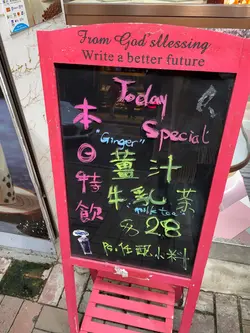 From God'sBlessing
Write a better future
Today
Special
本日特飲
"Ginger"
薑汁
牛乳茶
milk tea
$28